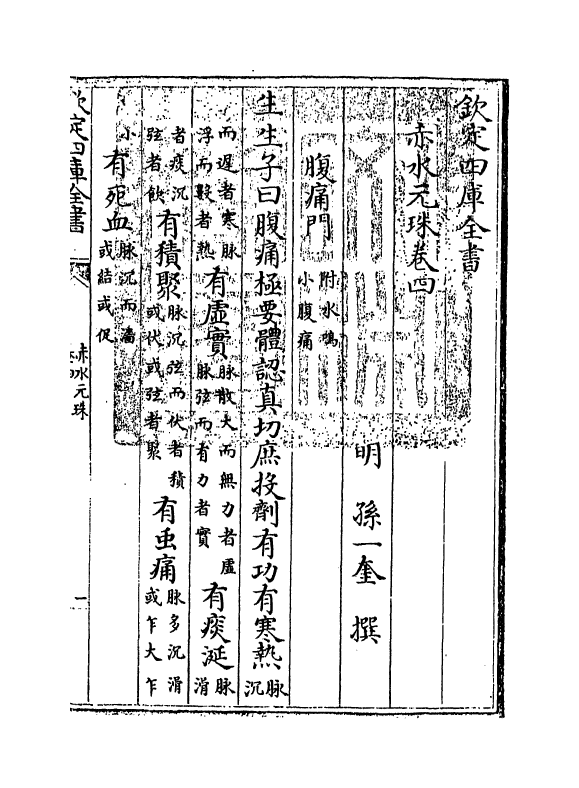 欽定四庫全書
赤水元珠卷四
明 孫一奎 撰
腹痛門 附水鳴 小腹痛
生生子曰腹痛極要體認真切庶投劑有功有寒熱 脉沉
而遲者寒脉浮而數者熱 有虛實 脉散大而無力者虛脉弦而有力者實 有痰涎 脉滑
者痰沉弦者飲 有積聚 脉沉弦而伏者積或伏或弦者聚 有虫痛 脉多沉滑或乍大乍
小 有死血 脉沉而濇或結或促
欽定四庫全書
赤水元珠
一